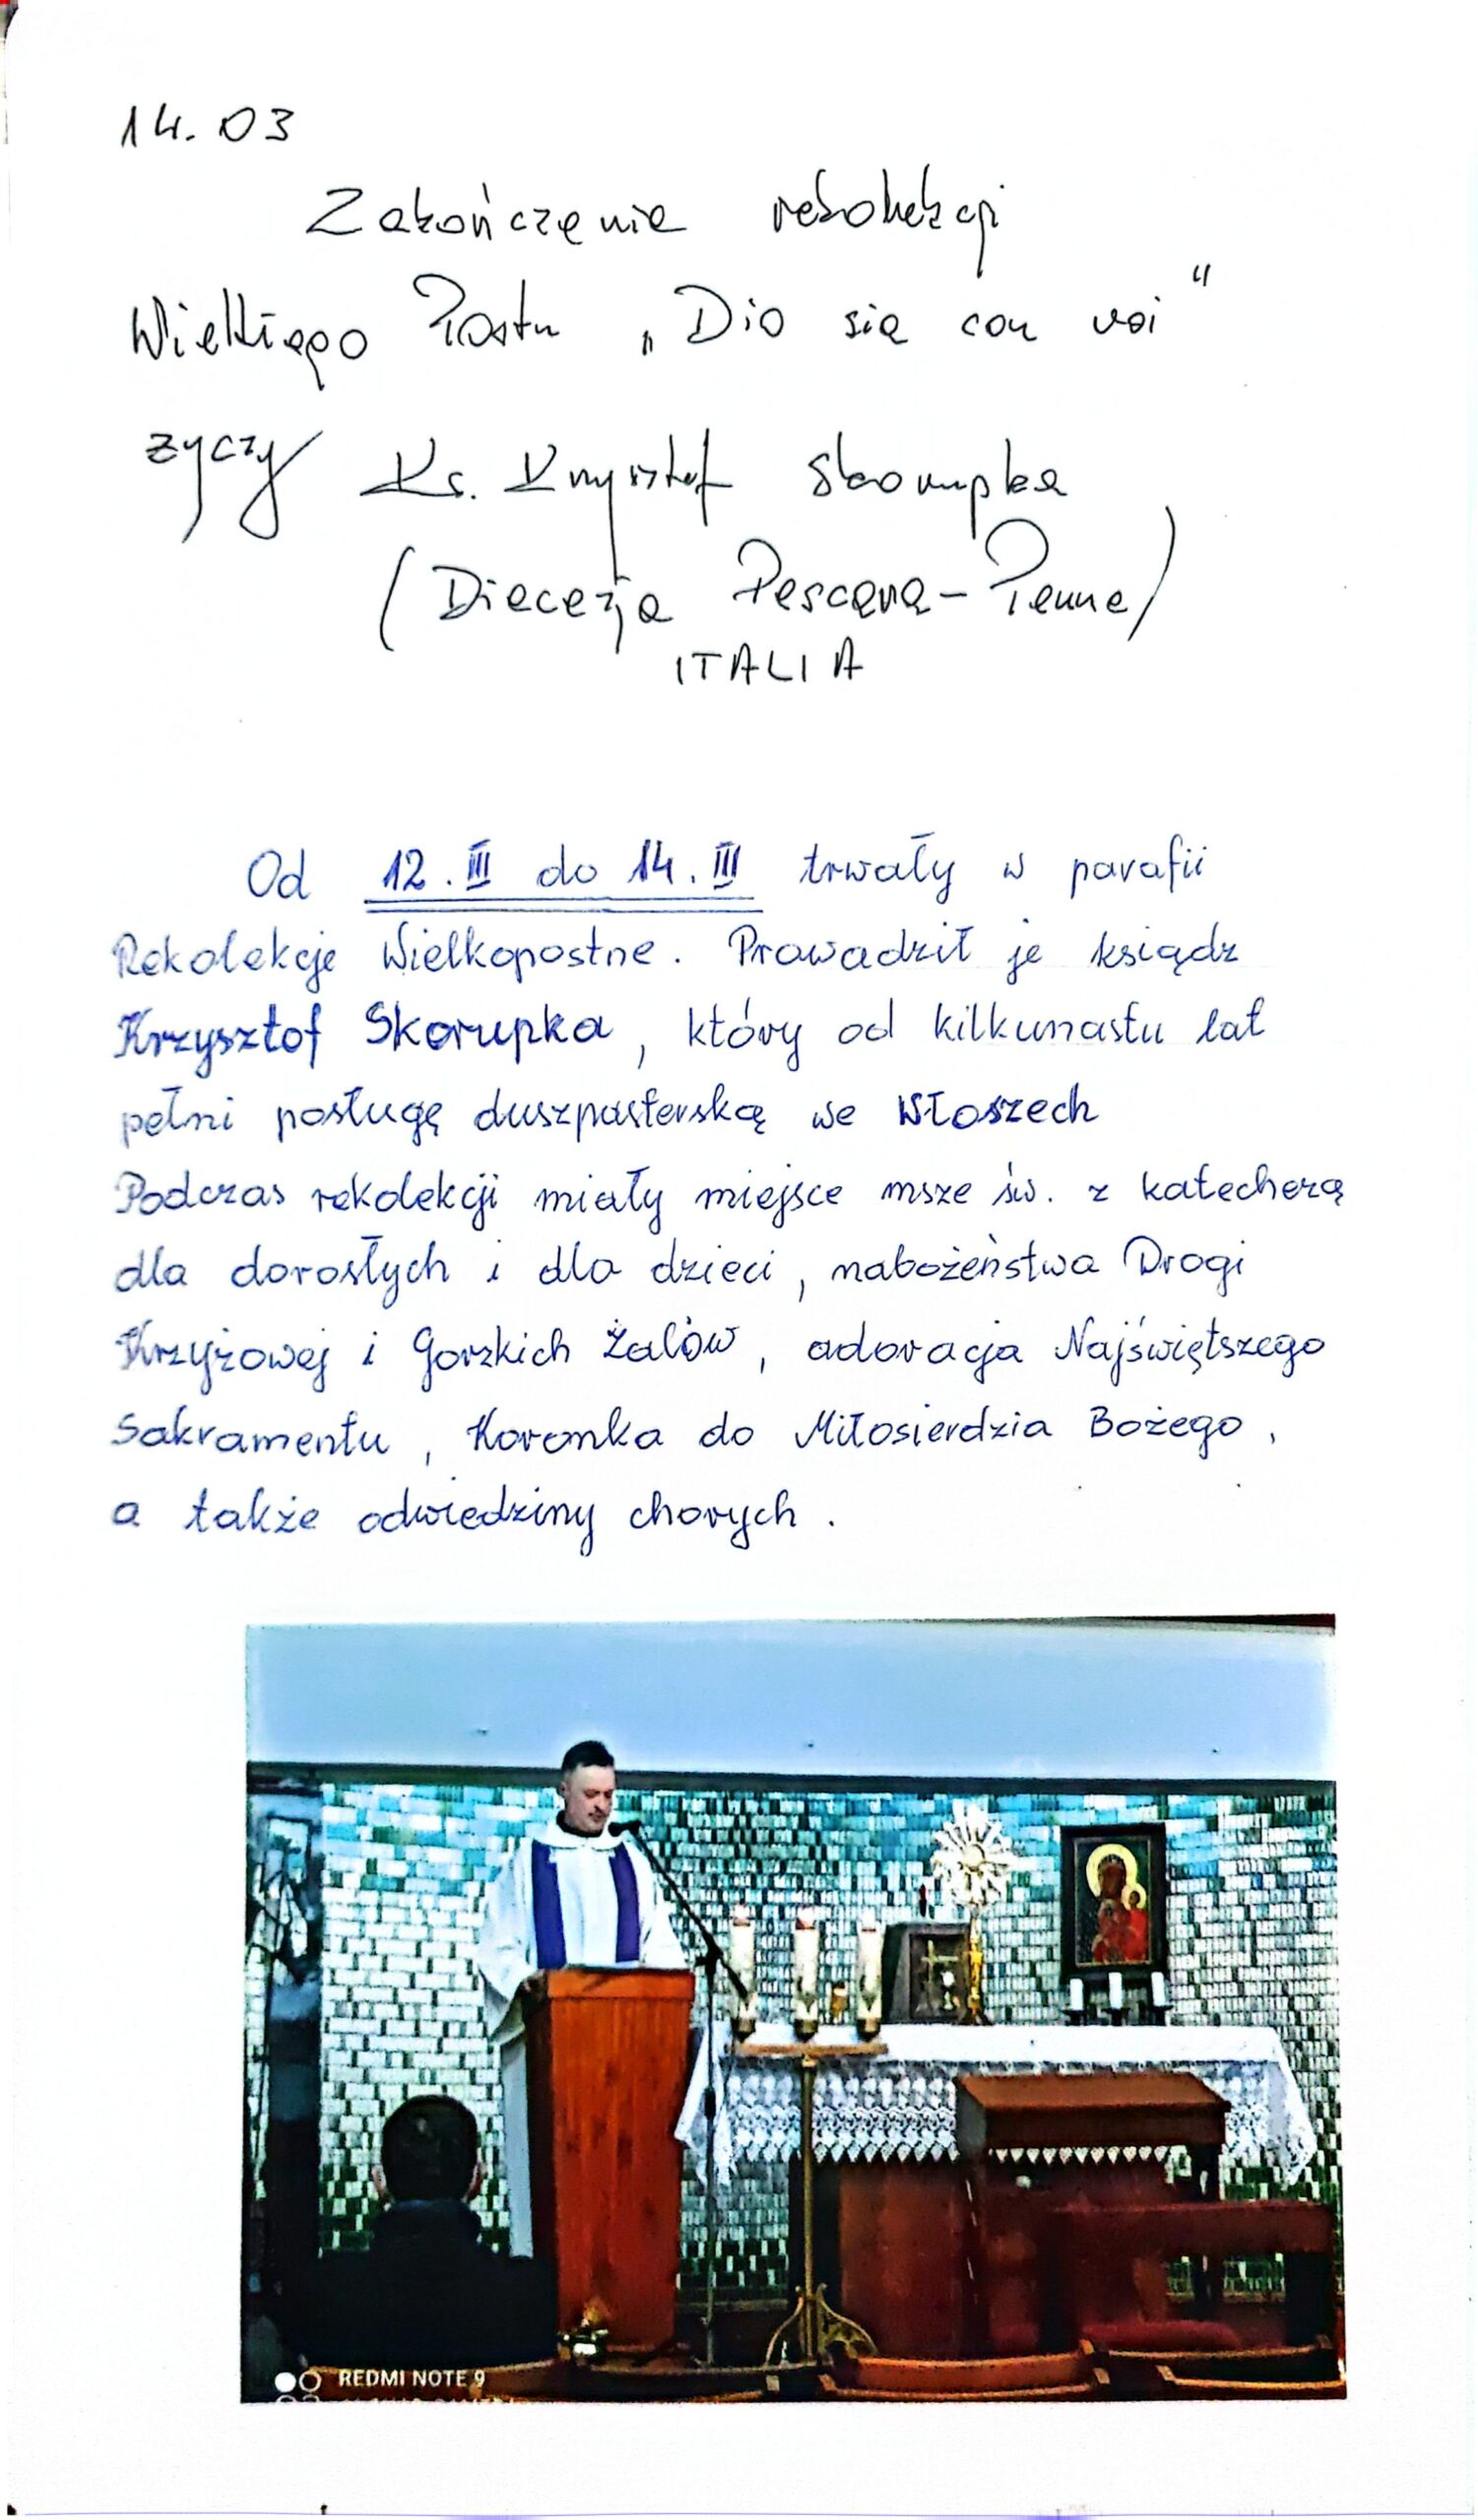 14.03
Zakończenie rekolekcji
Wielkiego Postu „Dio sia con voi"
życzy Ks. Krzysztof Skorupka
(Diecezja Pescara-Penne)
ITALIA
Od 12.III do 14.III trwały w parafii
Rekolekcje Wielkopostne. Prowadził je ksiądz
Krzysztof Skorupka, który od kilkunastu lat
pełni posługę duszpasterską we Włoszech
Podczas rekolekcji miały miejsce msze św. z katechezą
dla dorosłych i dla dzieci, nabożeństwa Drogi
Krzyżowej i Gorzkich Żalów, adoracja Najświętszego
Sakramentu, Koronka do Miłosierdzia Bożego,
a także odwiedziny chorych.
REDMI NOTE 9